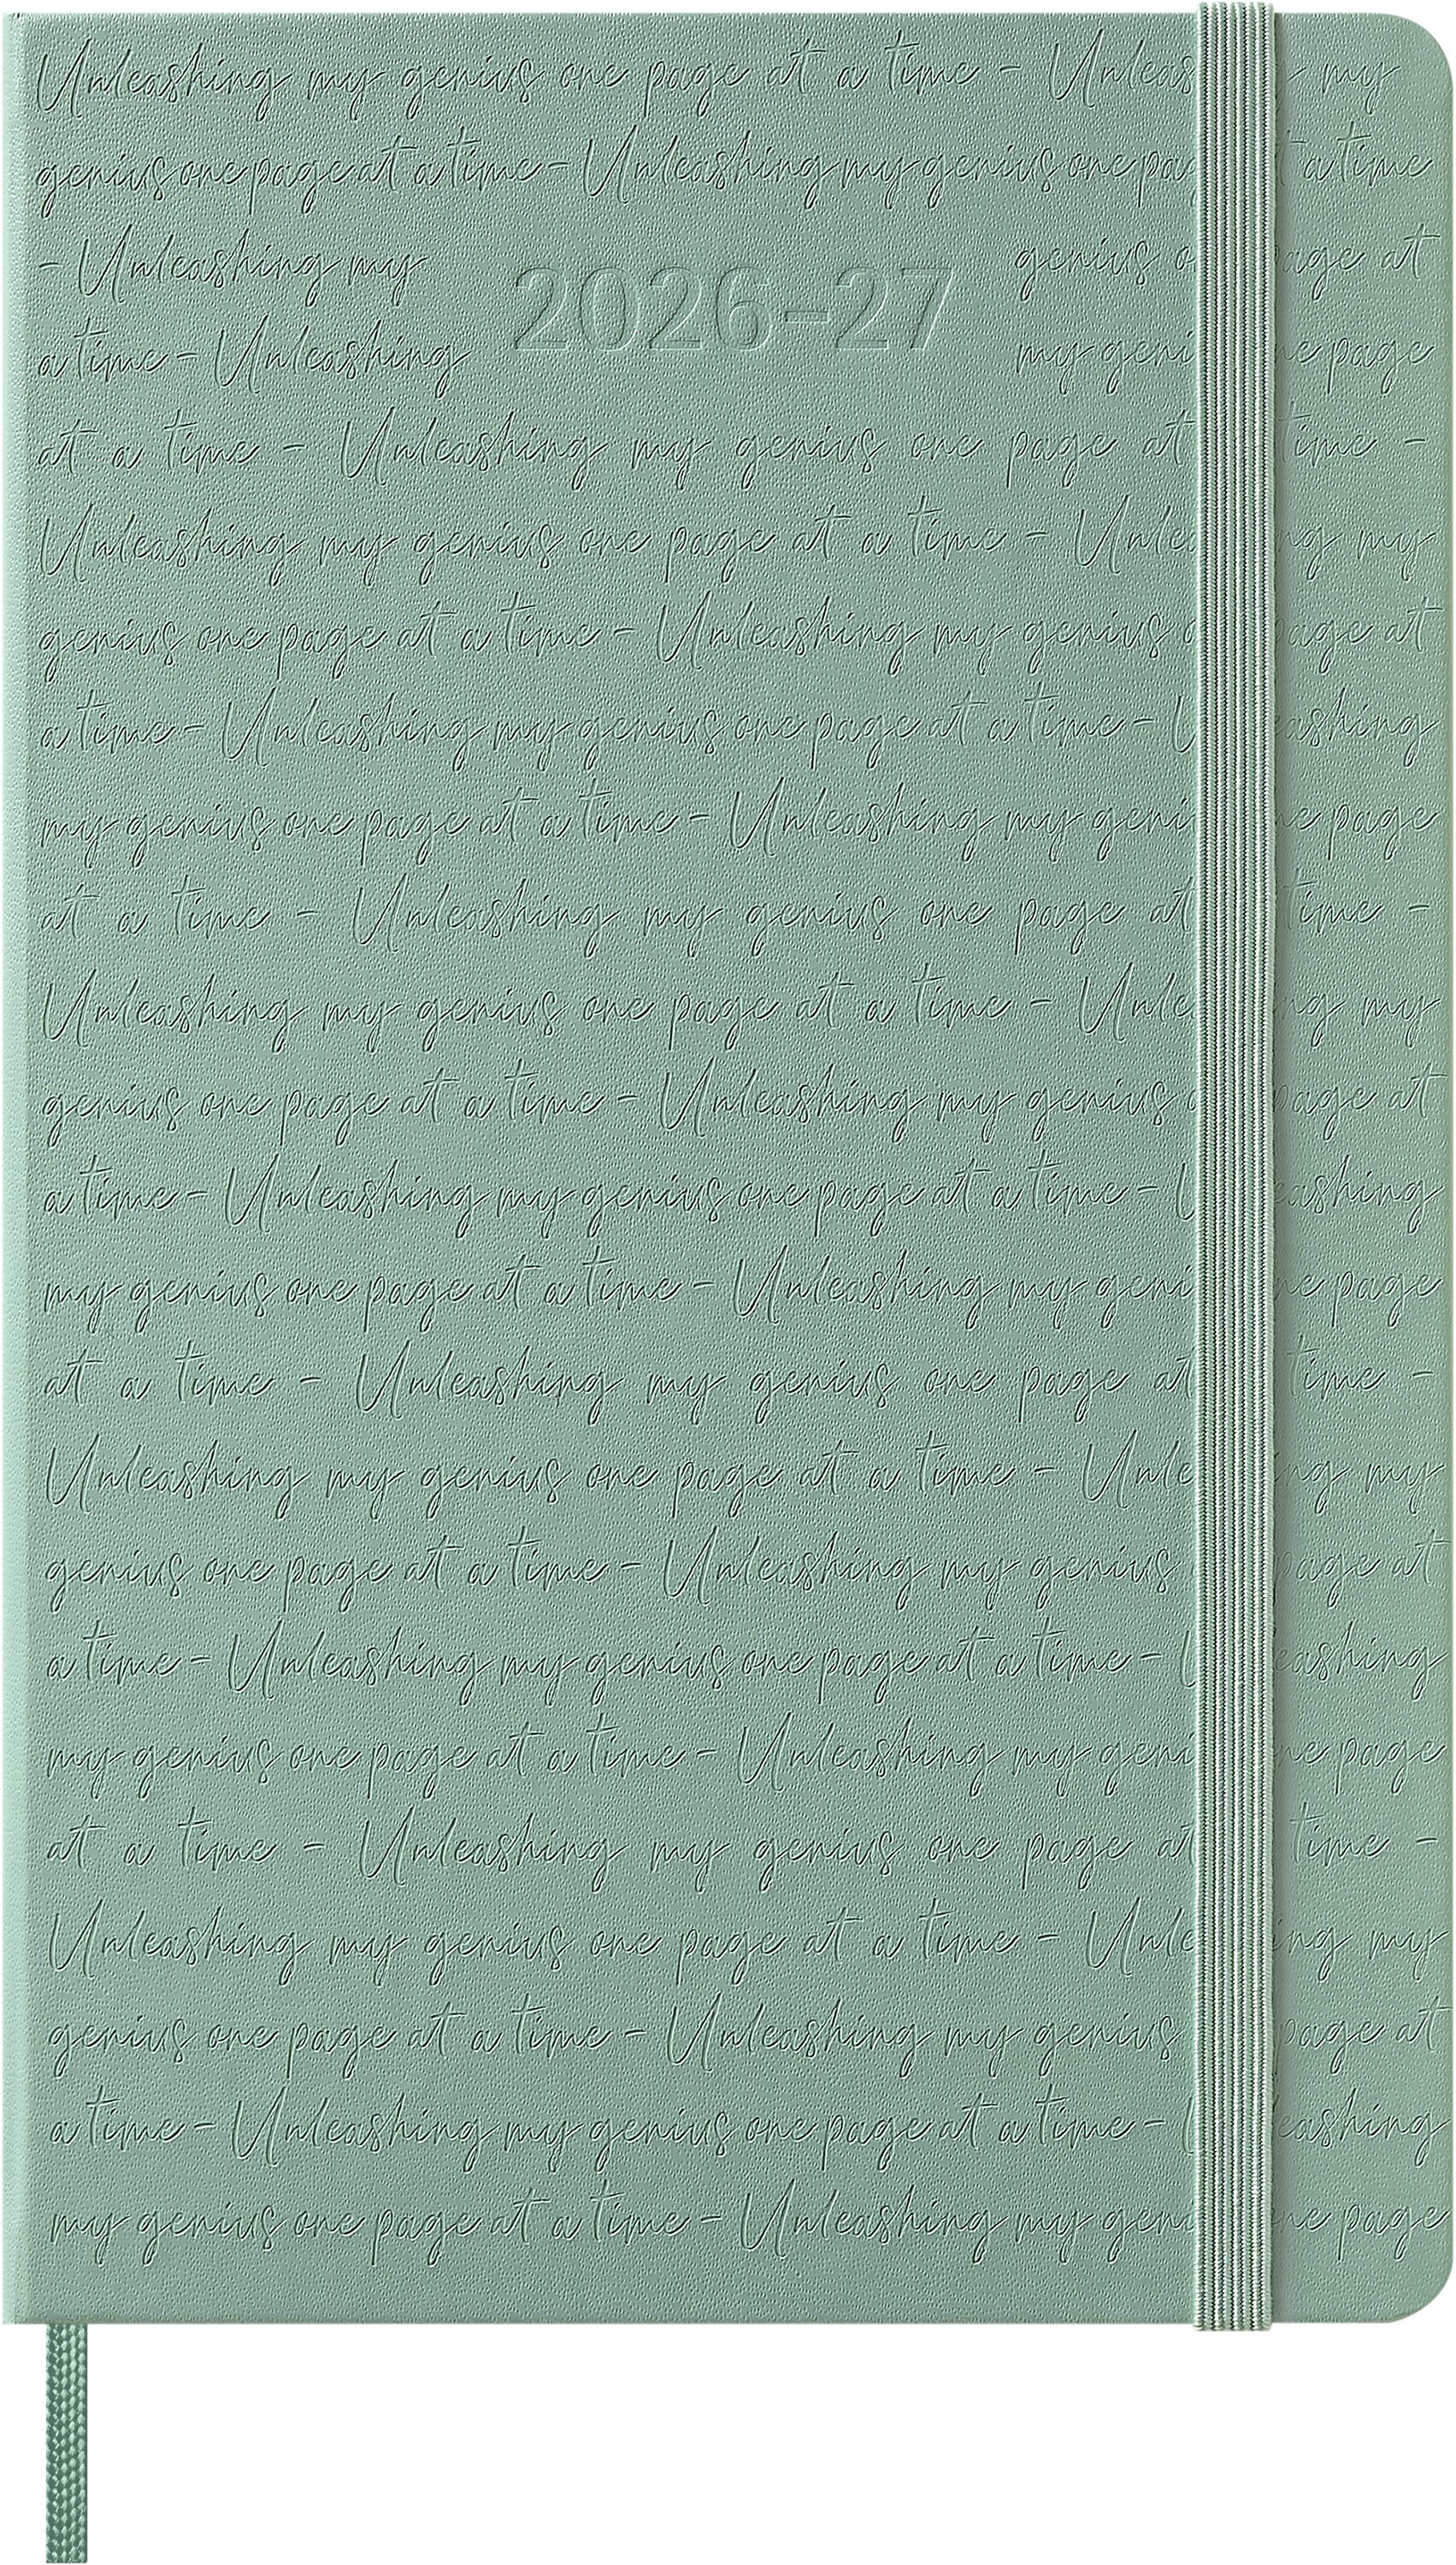 Unleashing my genius one page at a time - Unleas my
genius one page at a time - Unleashing my genius one pa a time
- Unleashing my 2026-27 genius o age at
a time - Unleashing my geni e page
at a time - Unleashing my genius one page at time -
Unleashing my genius one page at a time - Unle g my
genius one page at a time - Unleashing my genius o age at
a time - Unleashing my genius one page at a time - U eashing
my genius one page at a time - Unleashing my geni e page
at a time - Unleashing my genius one page at time -
Unleashing my genius one page at a time - Unle ng my
genius one page at a time - Unleashing my genius o page at
a time - Unleashing my genius one page at a time - U eashing
my genius one page at a time - Unleashing my geni e page
at a time - Unleashing my genius one page at time -
Unleashing my genius one page at a time - Unle ng my
genius one page at a time - Unleashing my genius page at
a time - Unleashing my genius one page at a time - U eashing
my genius one page at a time - Unleashing my geni ne page
at a time - Unleashing my genius one page at time -
Unleashing my genius one page at a time - Unle ing my
genius one page at a time - Unleashing my genius page at
a time - Unleashing my genius one page at a time - U eashing
my genius one page at a time - Unleashing my geni ne page